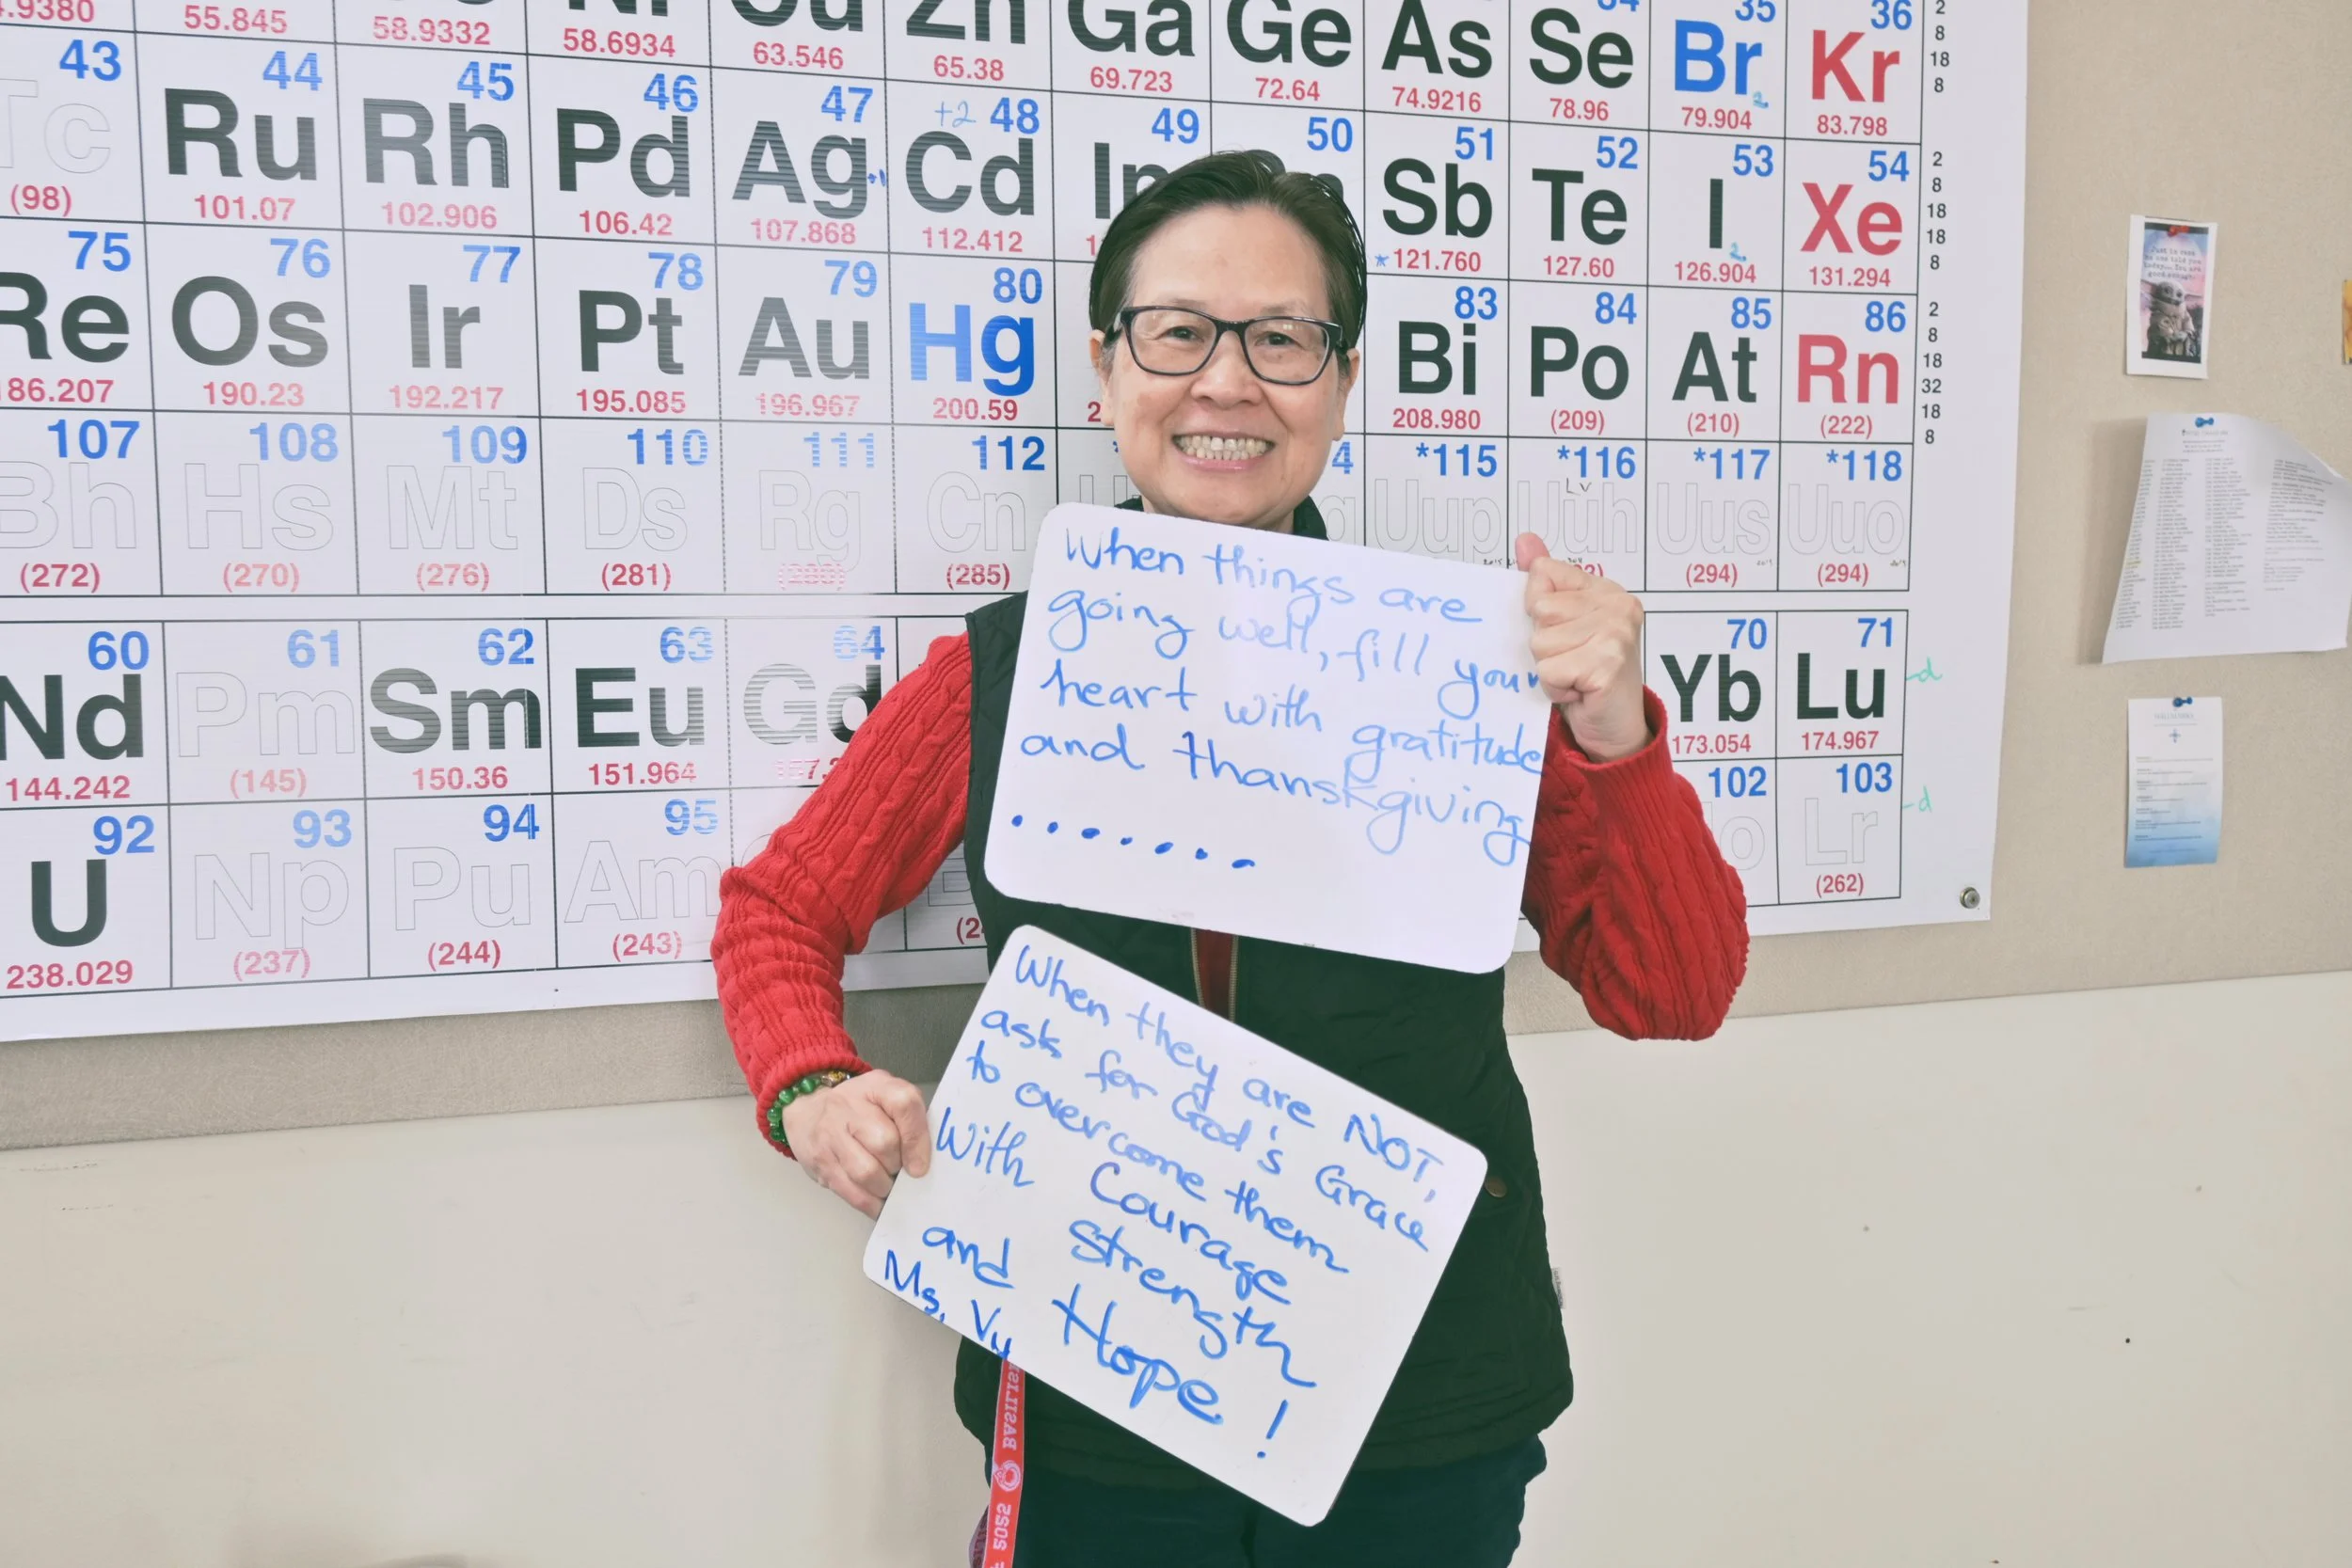 4.9380 55.845 58.9332 58.6934 63.546 65.38 69.723 72.64 74.9216 78.96 79.904 83.798
Cu Zn Ga Ge As Se Br Kr
35 36
2
8
18
8
43 44 45 46 47 +2 48 49 50 51 52 53 54
Tc Ru Rh Pd Ag Cd In Sb Te I Xe
(98) 101.07 102.906 106.42 107.868 112.412 *121.760 127.60 126.904 131.294
2
8
18
18
8
75 76 77 78 79 80 83 84 85 86
Re Os Ir Pt Au Hg Bi Po At Rn
186.207 190.23 192.217 195.085 196.967 200.59 208.980 (209) (210) (222)
2
8
18
32
18
8
107 108 109 110 111 112 *115 *116 *117 *118
Lv
Bh Hs Mt Ds Rg Cn Uup Uuh Uus Uuo
(272) (270) (276) (281) (285) (294) (294)
60 61 62 63 64 70 71
Nd Pm Sm Eu Gd Yb Lu
-d
144.242 (145) 150.36 151.964 173.054 174.967
92 93 94 95 102 103
-d
U Np Pu Am No Lr
238.029 (237) (244) (243) (262)
When things are
going well, fill your
heart with gratitude
and thanskgiving
.......
When they are NOT,
ask for God's Grace
to overcome them
with Courage
Strength
and Hope!
Ms. Vy
Just in case
no one told you
today... You are
good enough.